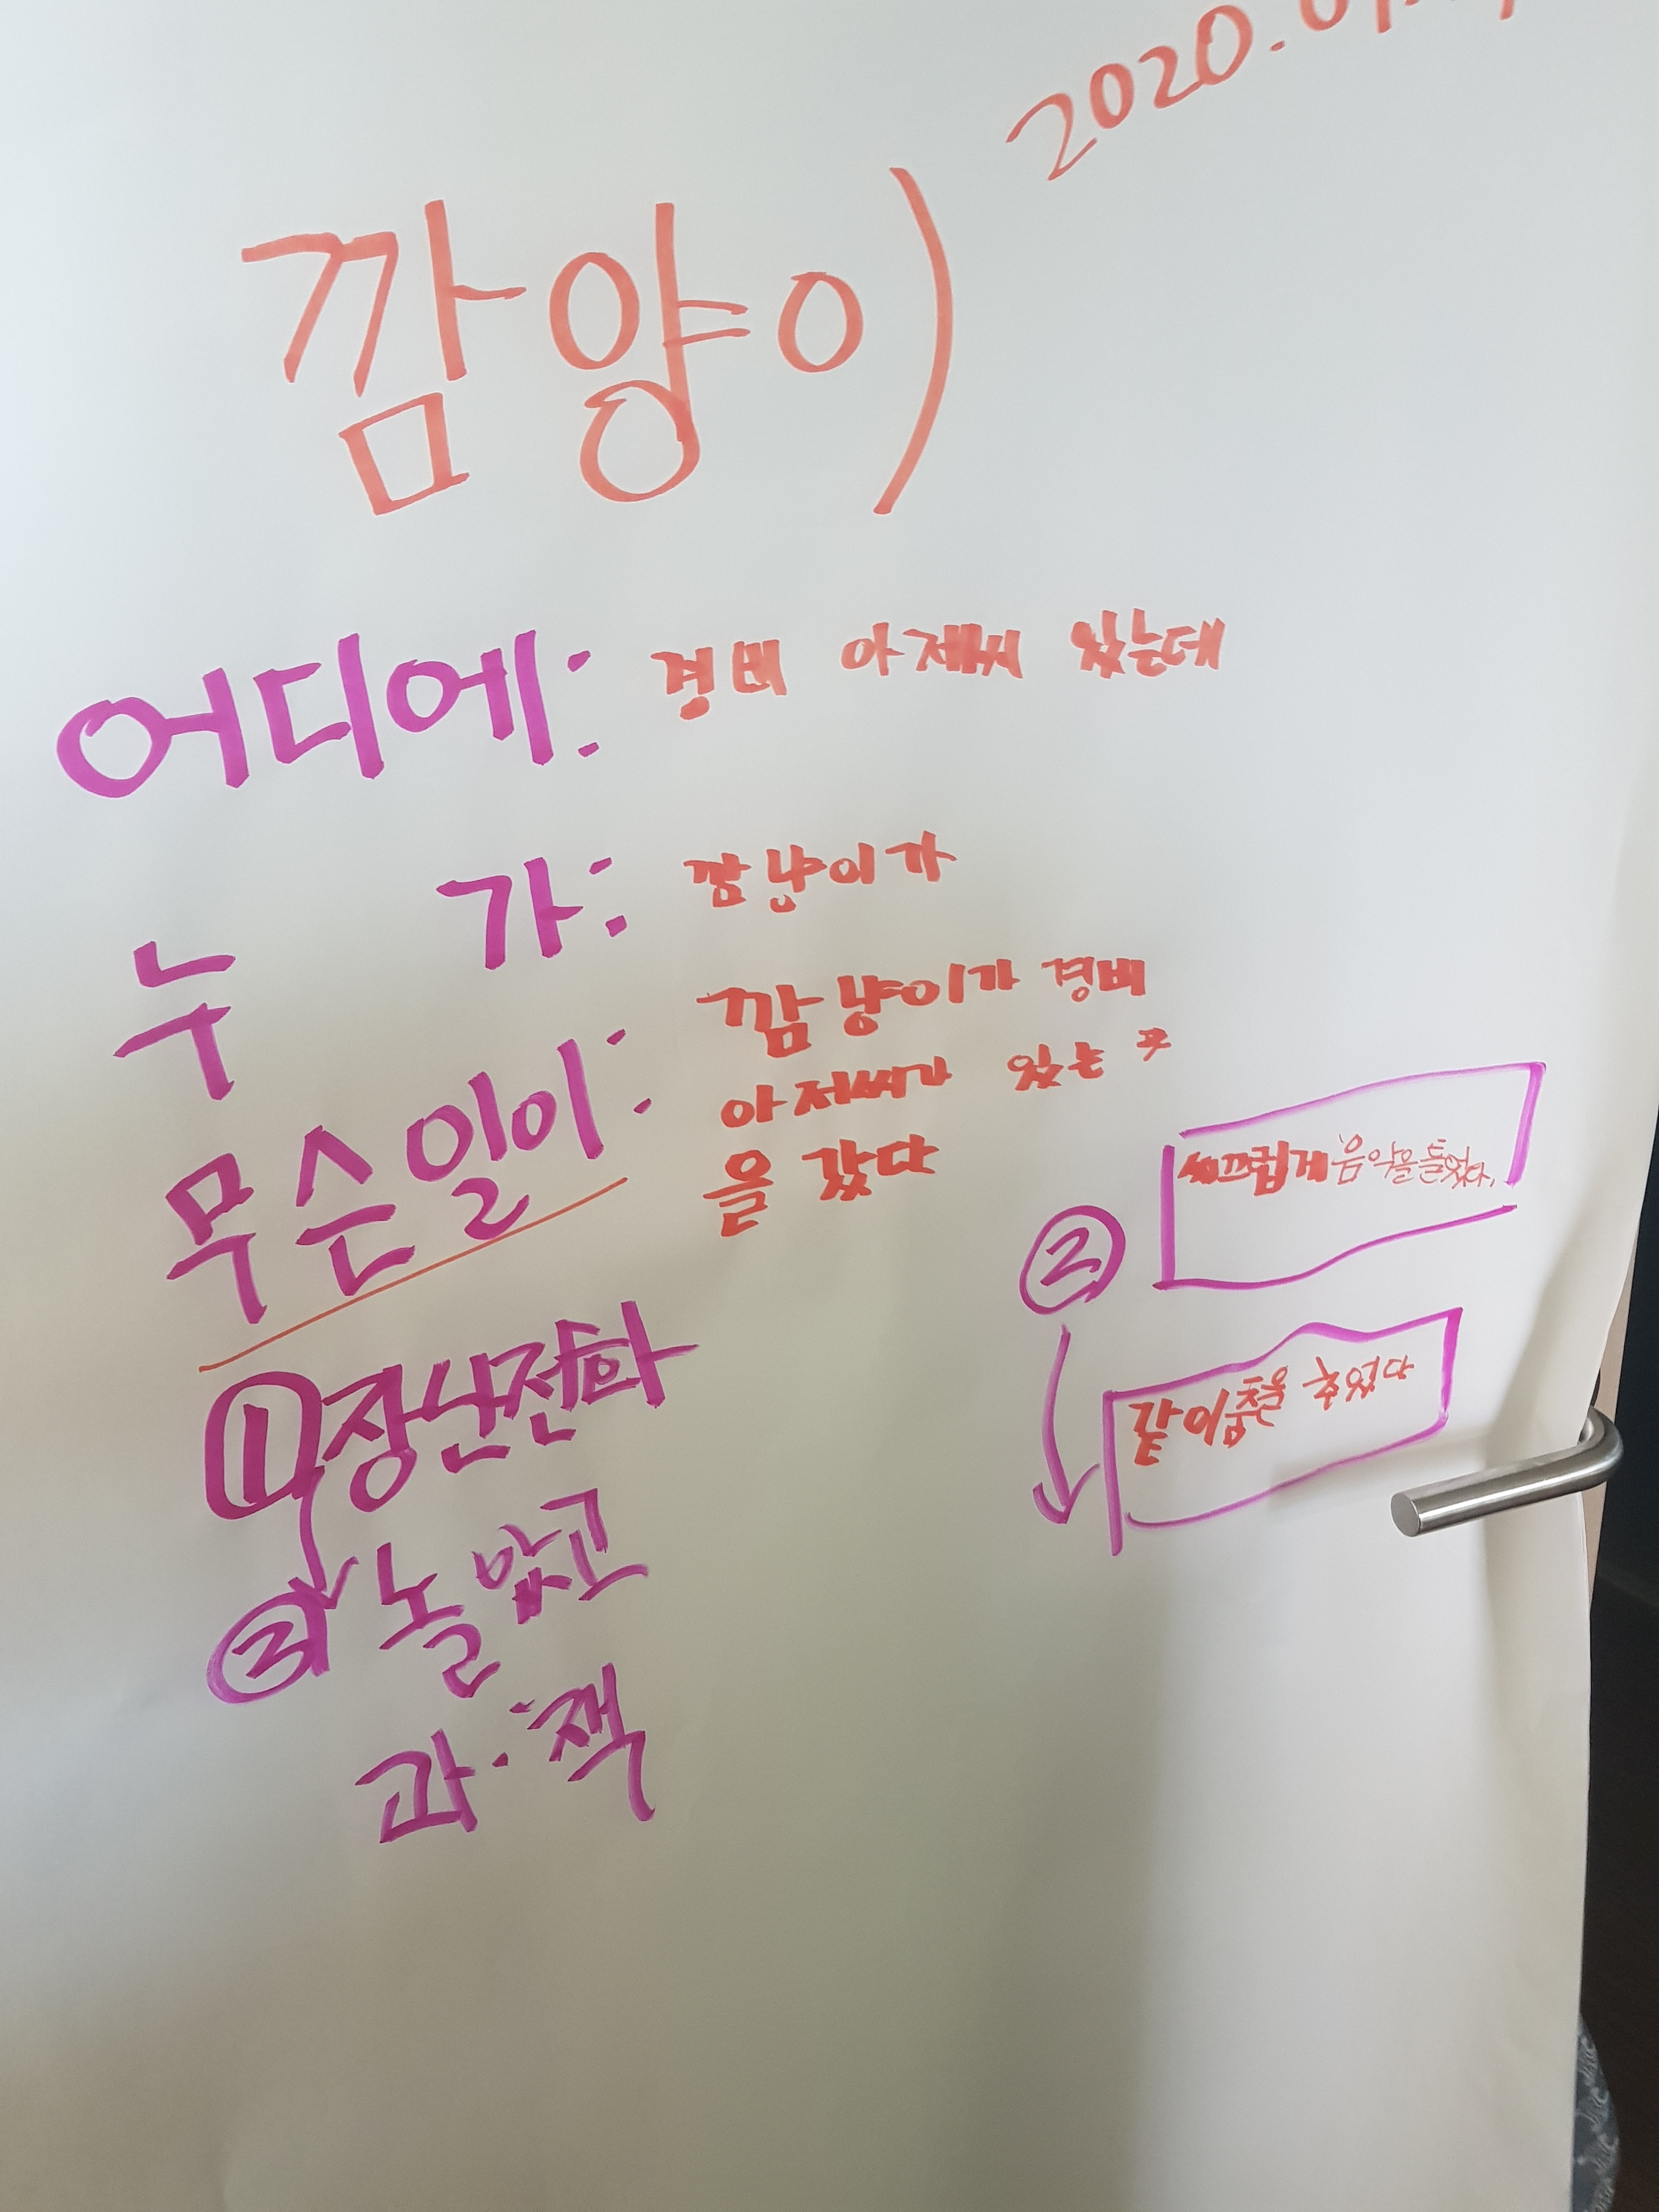 2020.
깜양이)
어디에: 경비 아제씨 있는데
누가: 깜냥이가
무슨일이: 깜냥이가 경비
아저씨가 있는 곳
을 갔다
①장난전화
② 놀았고
과·책
② 씨끄럽게 음악을 들었다.
같이 춤을 추었다